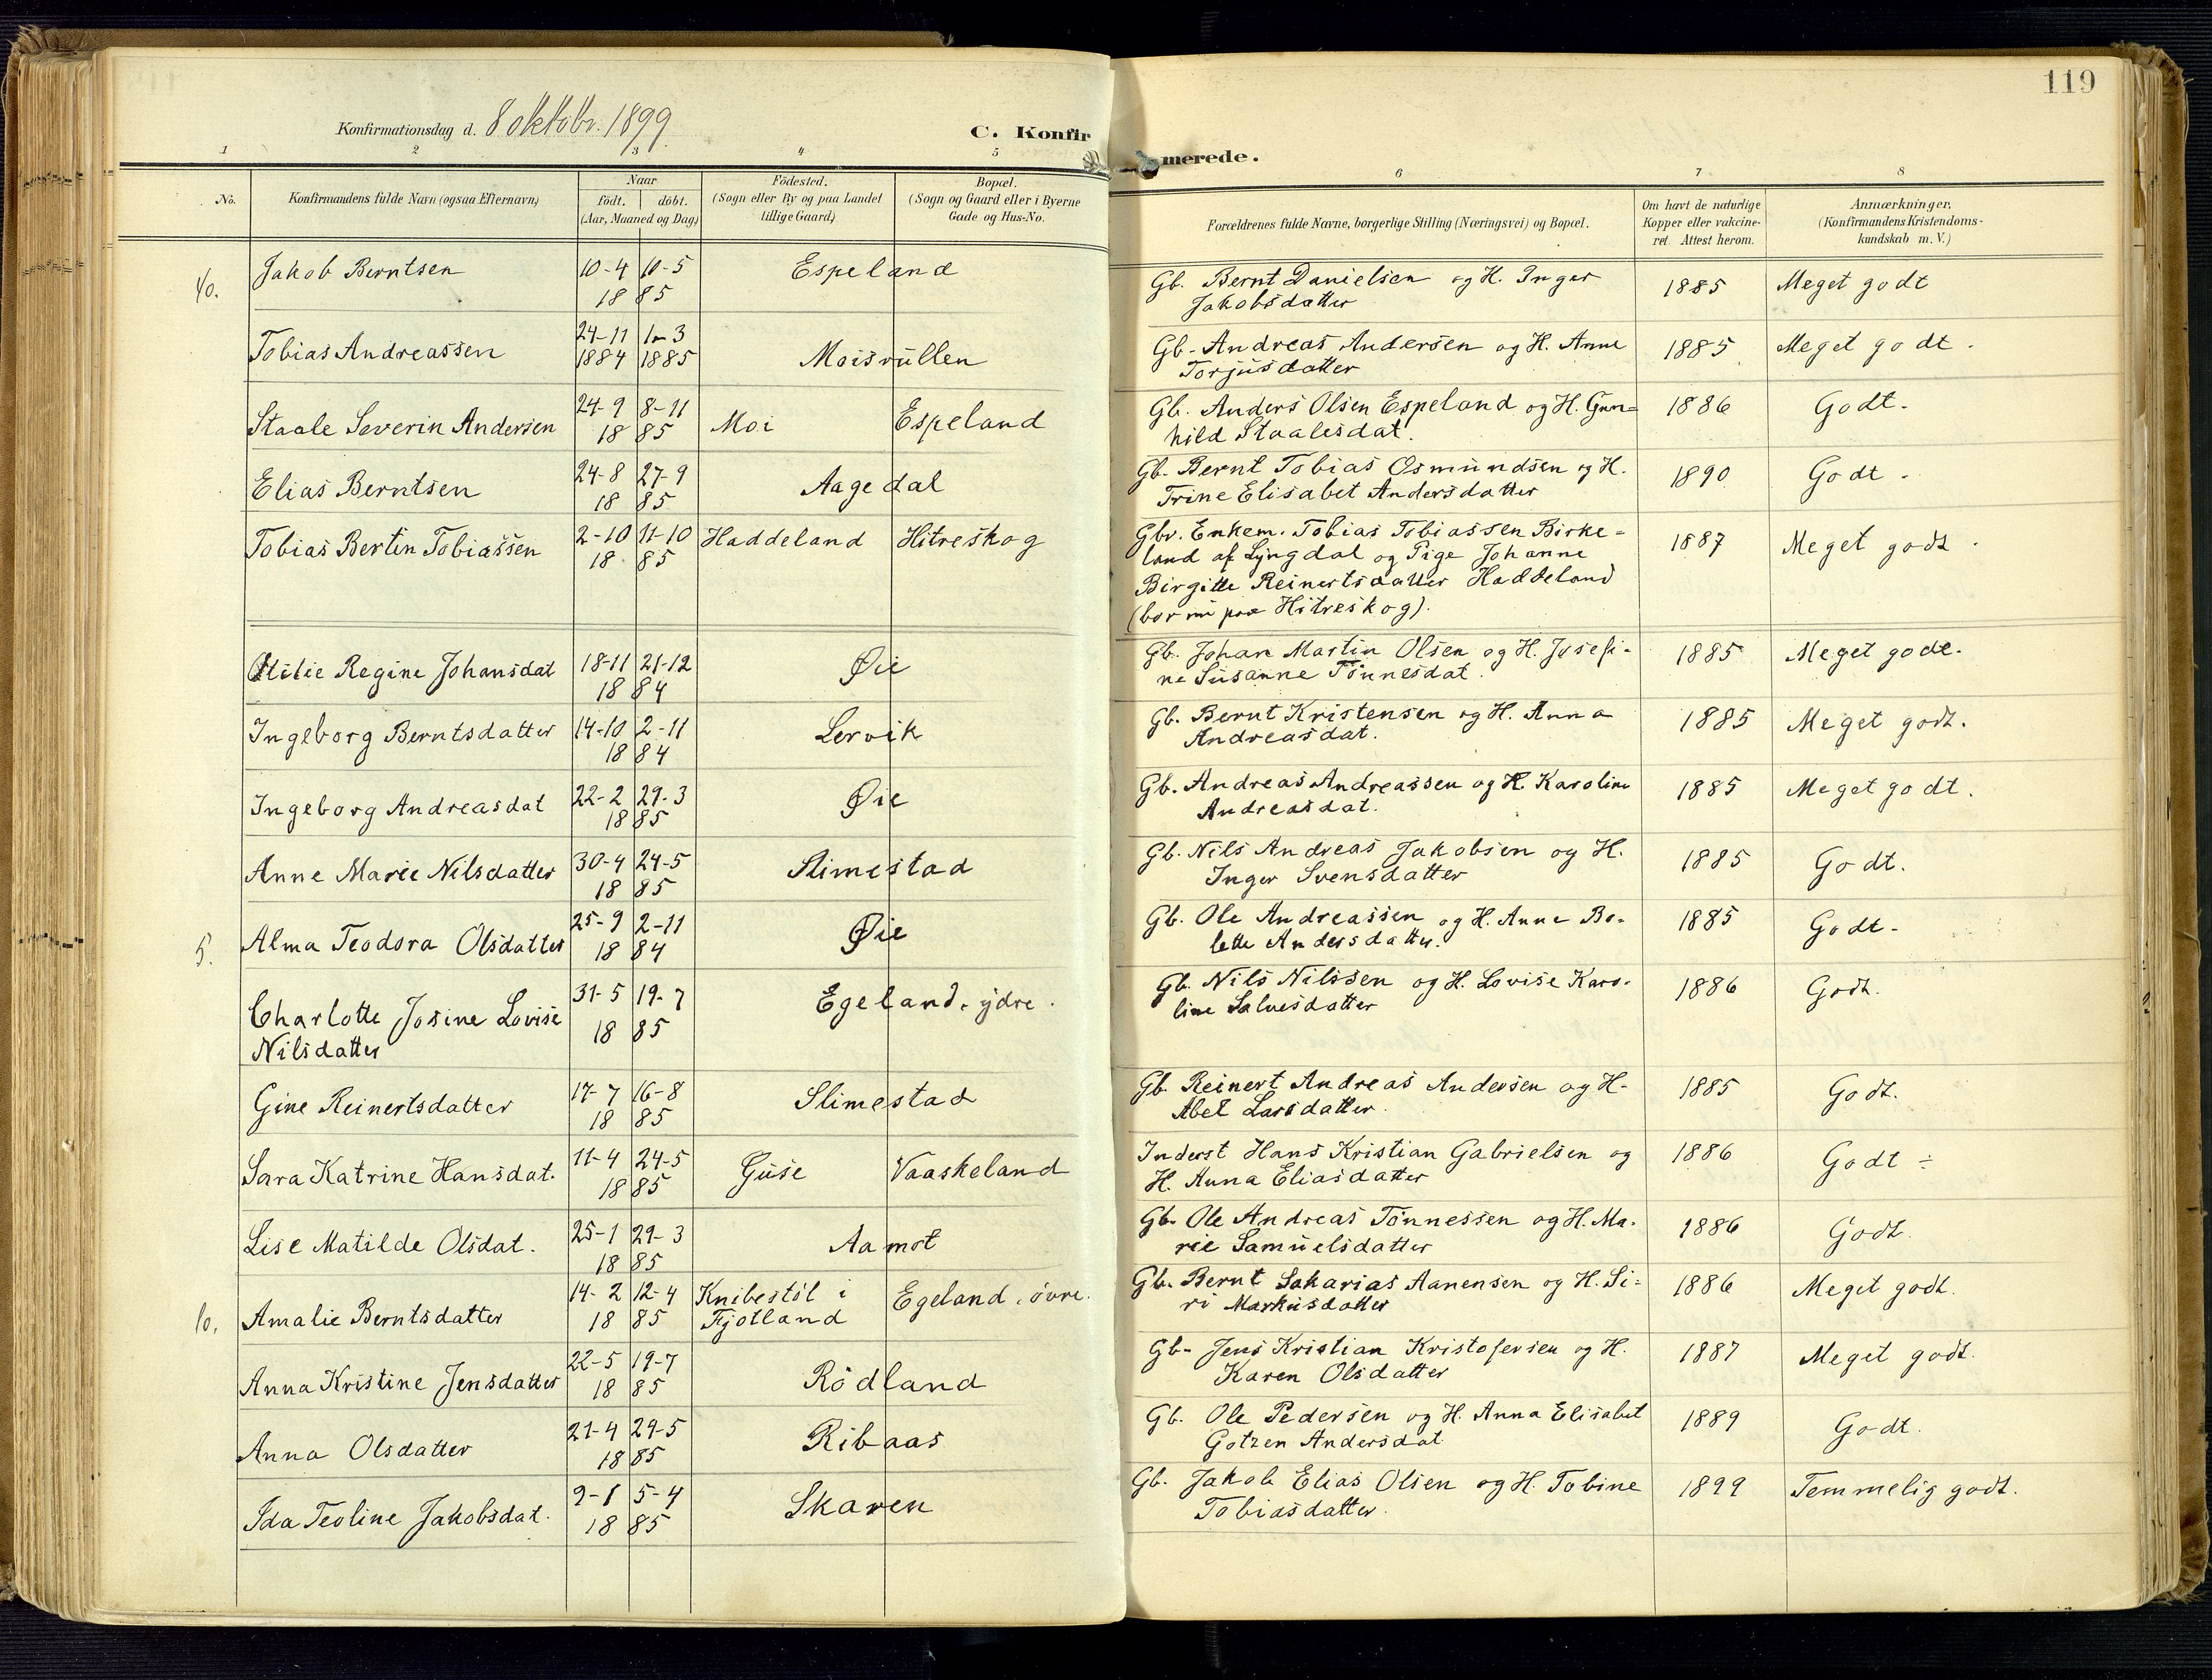 119
Konfirmationsdag d. 8 oktobr. 1899.
C. Konfirmerede.
1 2 3 4 5 6 7 8
No.
Konfirmandens fulde Navn (ogsaa Efternavn)
Naar
födt. döbt.
(Aar, Maaned og Dag)
Födested.
(Sogn eller By og paa Landet
tillige Gaard)
Bopæl.
(Sogn og Gaard eller i Byerne
Gade og Hus-No.
Forældrenes fulde Navne, borgerlige Stilling (Næringsvei) og Bopæl.
Om havt de naturlige
Kopper eller vakcine-
ret. Attest herom.
Anmærkninger,
(Konfirmandens Kristendoms-
kundskab m. V.)
40. Jakob Berntsen 10-4 10-5 Espeland Gb. Bernt Danielsen og H. Inger 1885 Meget godt
18 85 Jakobsdatter
Tobias Andreassen 24-11 1-3 Moisrullen Gb. Andreas Andersen og H. Anne 1885 Meget godt.
1884 1885 Torjusdatter
Staale Severin Andersen 24-9 8-11 Moi Espeland Gb. Anders Olsen Espeland og H. Gun= 1886 Godt.
18 85 hild Staalesdat.
Elias Berntsen 24-8 27-9 Aagedal Gb. Bernt Tobias Osmundsen og H. 1890 Godt.
18 85 Trine Elisabet Andersdatter
Tobias Bertin Tobiassen 2-10 11-10 Haddeland Hitreskog Gbr. Enkem. Tobias Tobiassen Birke= 1887 Meget godt.
18 85 land af Lyngdal og Pige Johanne
Birgitte Reinertsdatter Haddeland
(bor nu paa Hitreskog).
Otilie Regine Johansdat 18-11 21-12 Øie Gb. Johan Martin Olsen og H. Josefi- 1885 Meget godt.
18 84 ne Susanne Tönnesdat.
Ingeborg Berntsdatter 14-10 2-11 Lervik Gb. Bernt Kristensen og H. Anna 1885 Meget godt.
18 84 Andreasdat.
Ingeborg Andreasdat 22-2 29-3 Øie Gb. Andreas Andreassen og H. Karoline 1885 Meget godt.
18 85 Andreasdat.
Anne Marie Nilsdatter 30-4 24-5 Slimestad Gb. Nils Andreas Jakobsen og H. 1885 Godt.
18 85 Inger Svensdatter
5. Alma Teodora Olsdatter 25-9 2-11 Øie Gb. Ole Andreassen og H. Anne Bo- 1885 Godt.
18 84 lette Andersdatter.
Charlotte Josine Lovise 31-5 19-7 Egeland, ydre. Gb. Nils Nilssen og H. Lovise Karo- 1886 Godt.
Nilsdatter 18 85 line Salvesdatter
Gine Reinertsdatter 17-7 16-8 Slimestad Gb. Reinert Andreas Andersen og H. 1885 Godt.
18 85 Abel Larsdatter.
Sara Katrine Hansdat. 11-4 24-5 Guse Vaaskeland Inderst Hans Kristian Gabrielsen og 1886 Godt ÷
18 85 H. Anna Eliasdatter
Lise Matilde Olsdat. 25-1 29-3 Aamot Gb. Ole Andreas Tönnessen og H. Ma- 1886 Godt.
18 85 rie Samuelsdatter
10. Amalie Berntsdatter 14-2 12-4 Knibestöl i Egeland, övre. Gb. Bernt Sakarias Aanensen og H. Si= 1886 Meget godt.
18 85 Fjotland ri Markusdatter
Anna Kristine Jensdatter 22-5 19-7 Rödland Gb. Jens Kristian Kristofersen og H. 1887 Meget godt.
18 85 Karen Olsdatter
Anna Olsdatter 21-4 29-5 Ribaas Gb. Ole Pedersen og H. Anna Elisabet 1889 Godt.
18 85 Gotzen Andersdat
Ida Teoline Jakobsdat. 9-1 5-4 Skaren Gb. Jakob Elias Olsen og H. Tobine 1899 Temmelig godt.
18 85 Tobiasdatter.